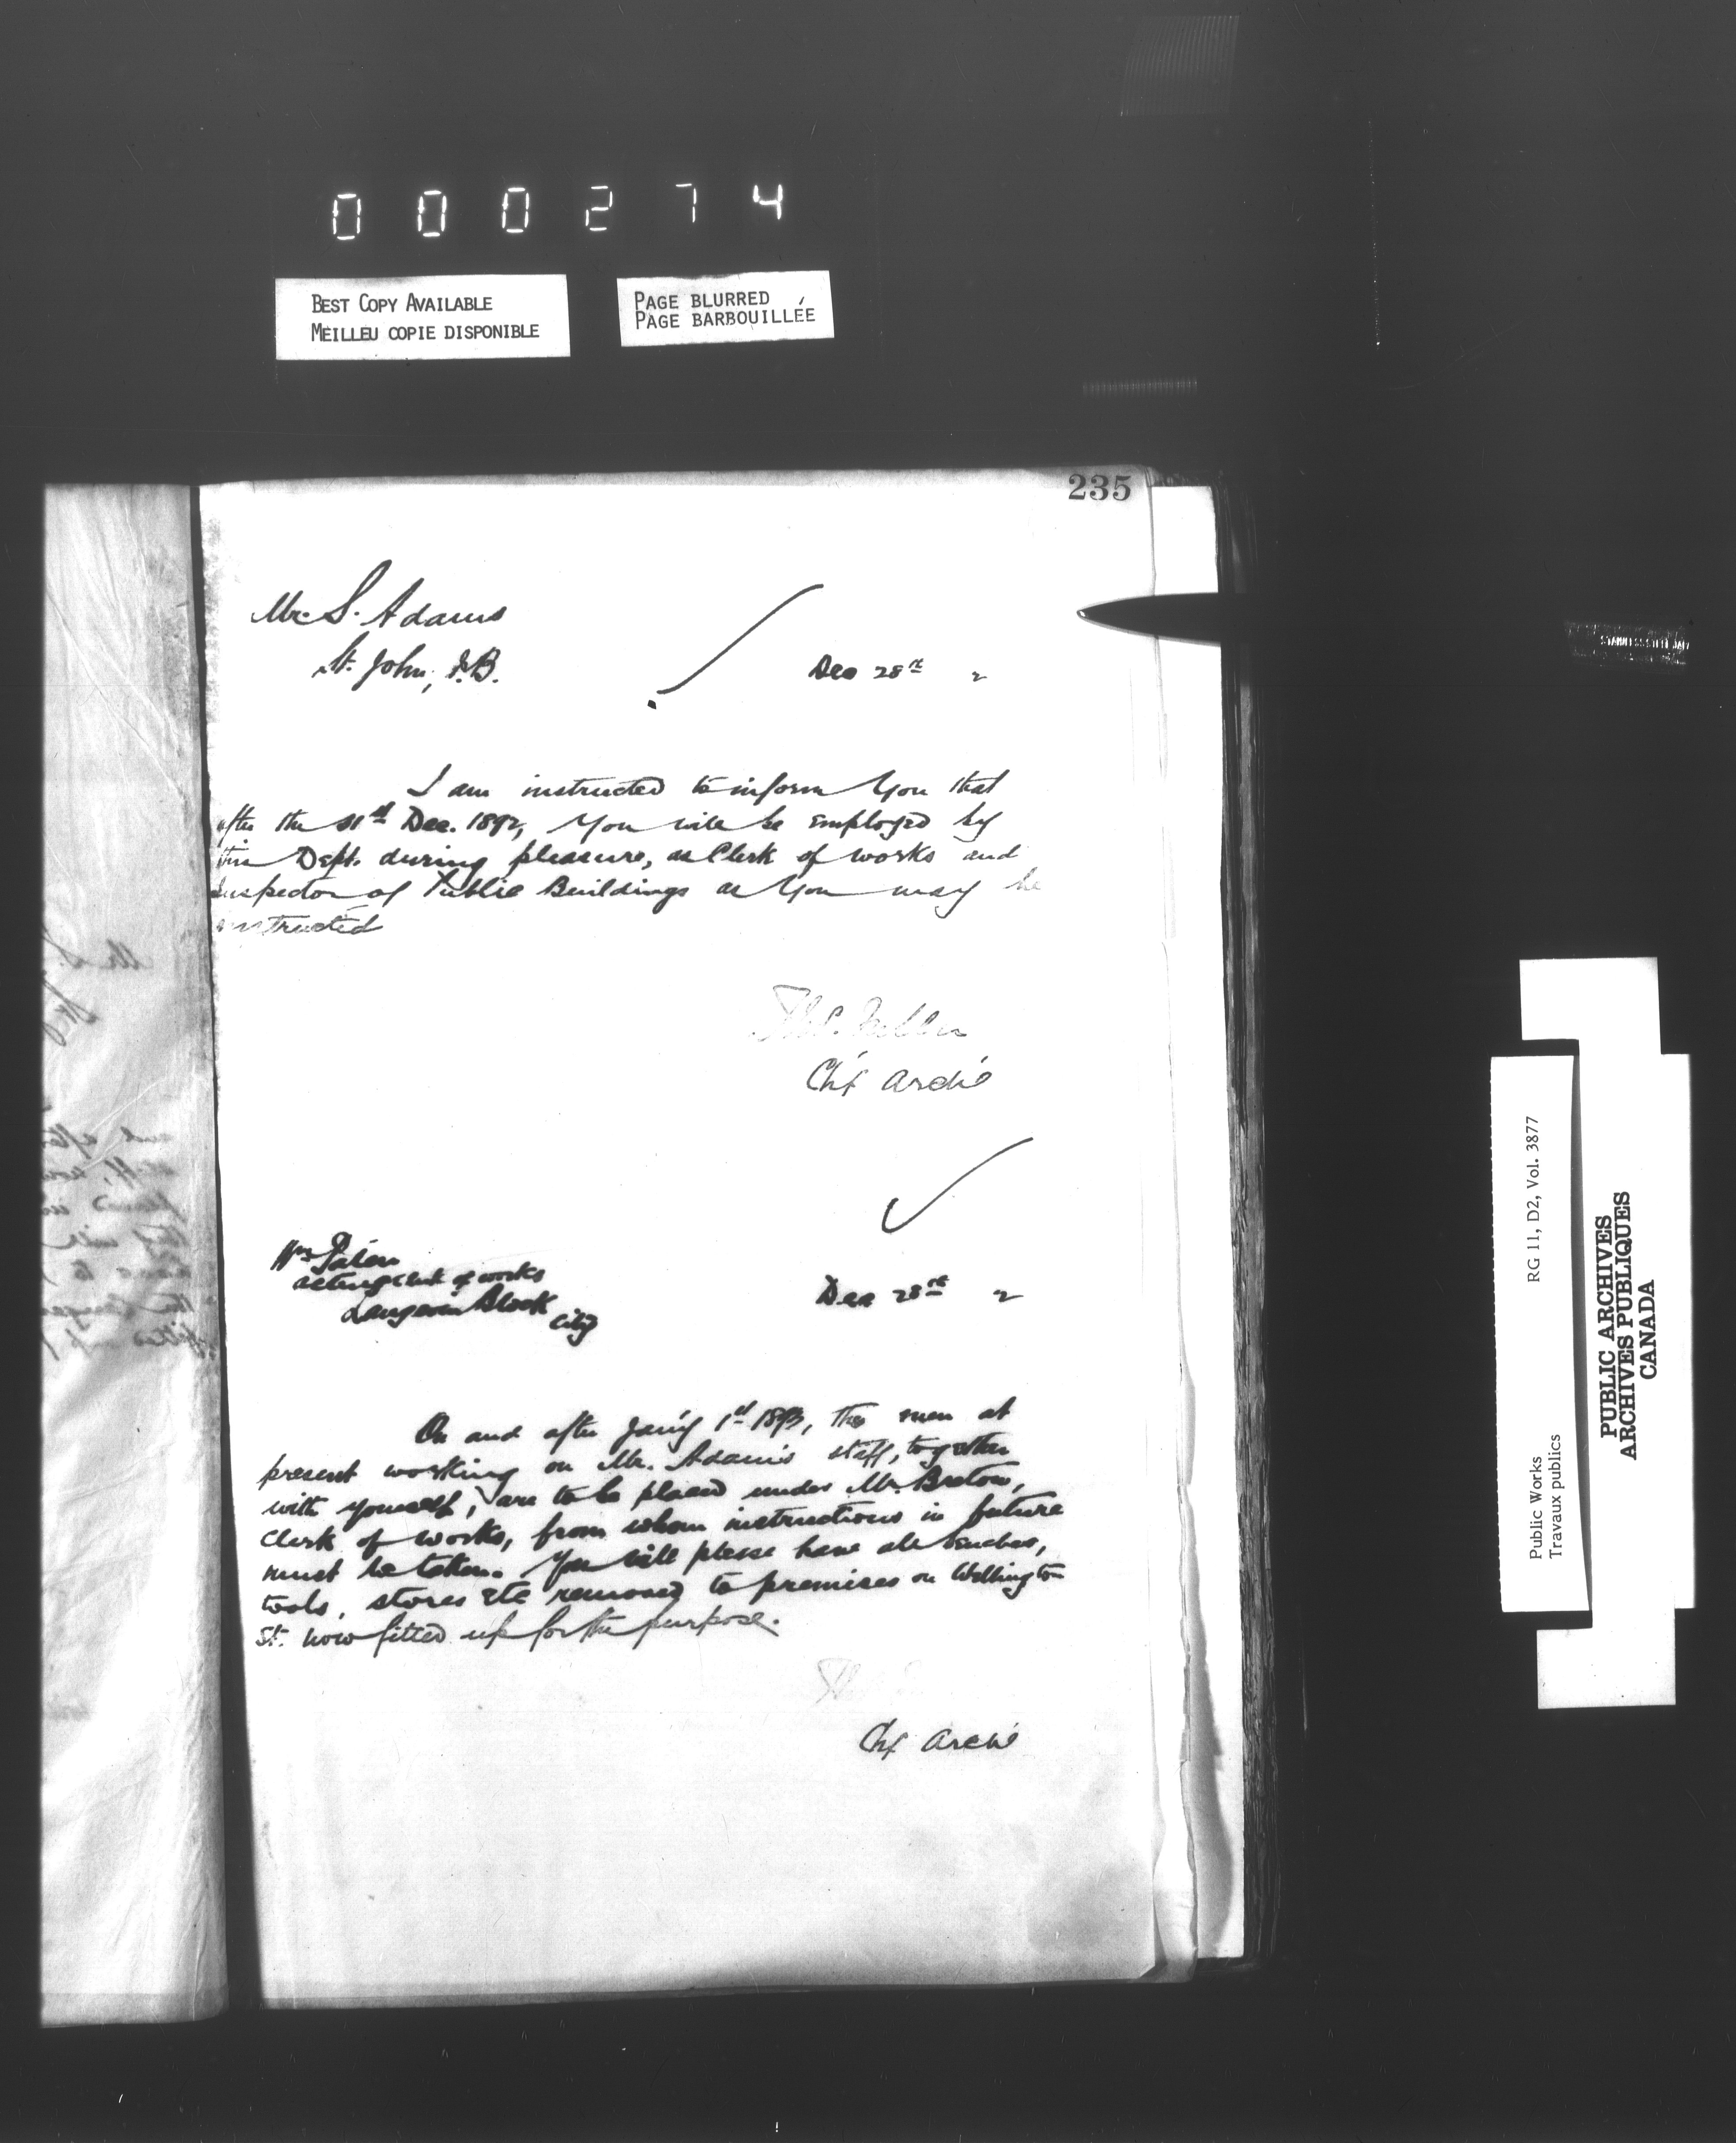 000274
BEST COPY AVAILABLE
MEILLEU COPIE DISPONIBLE
PAGE BLURRED
PAGE BARBOUILLÉE
235
Mr. S. Adams
St. John, N.B.
Dec 28th 2
I am instructed to inform You that
after the 31st Dec. 1892, You will be employed by
this Dept. during pleasure, as Clerk of works and
Inspector of Public Buildings as You may be
instructed
Thos. Fuller
Chf Archt
Wm
acting clerk of works
Langevin Block
City
Dec 28th 2
On and after Jan'y 1st 1893, the men at
present working on Mr. Adams staff, together
with yourself, are to be placed under Mr. Breton,
Clerk of works, from whom instructions in future
must be taken. You will please have all benches,
tools, stores etc removed to premises on Wellington
St. now fitted up for the purpose.
Chf Archt
STAINLESS STEEL
RG 11, D2, Vol. 3877
Public Works
Travaux publics
PUBLIC ARCHIVES
ARCHIVES PUBLIQUES
CANADA